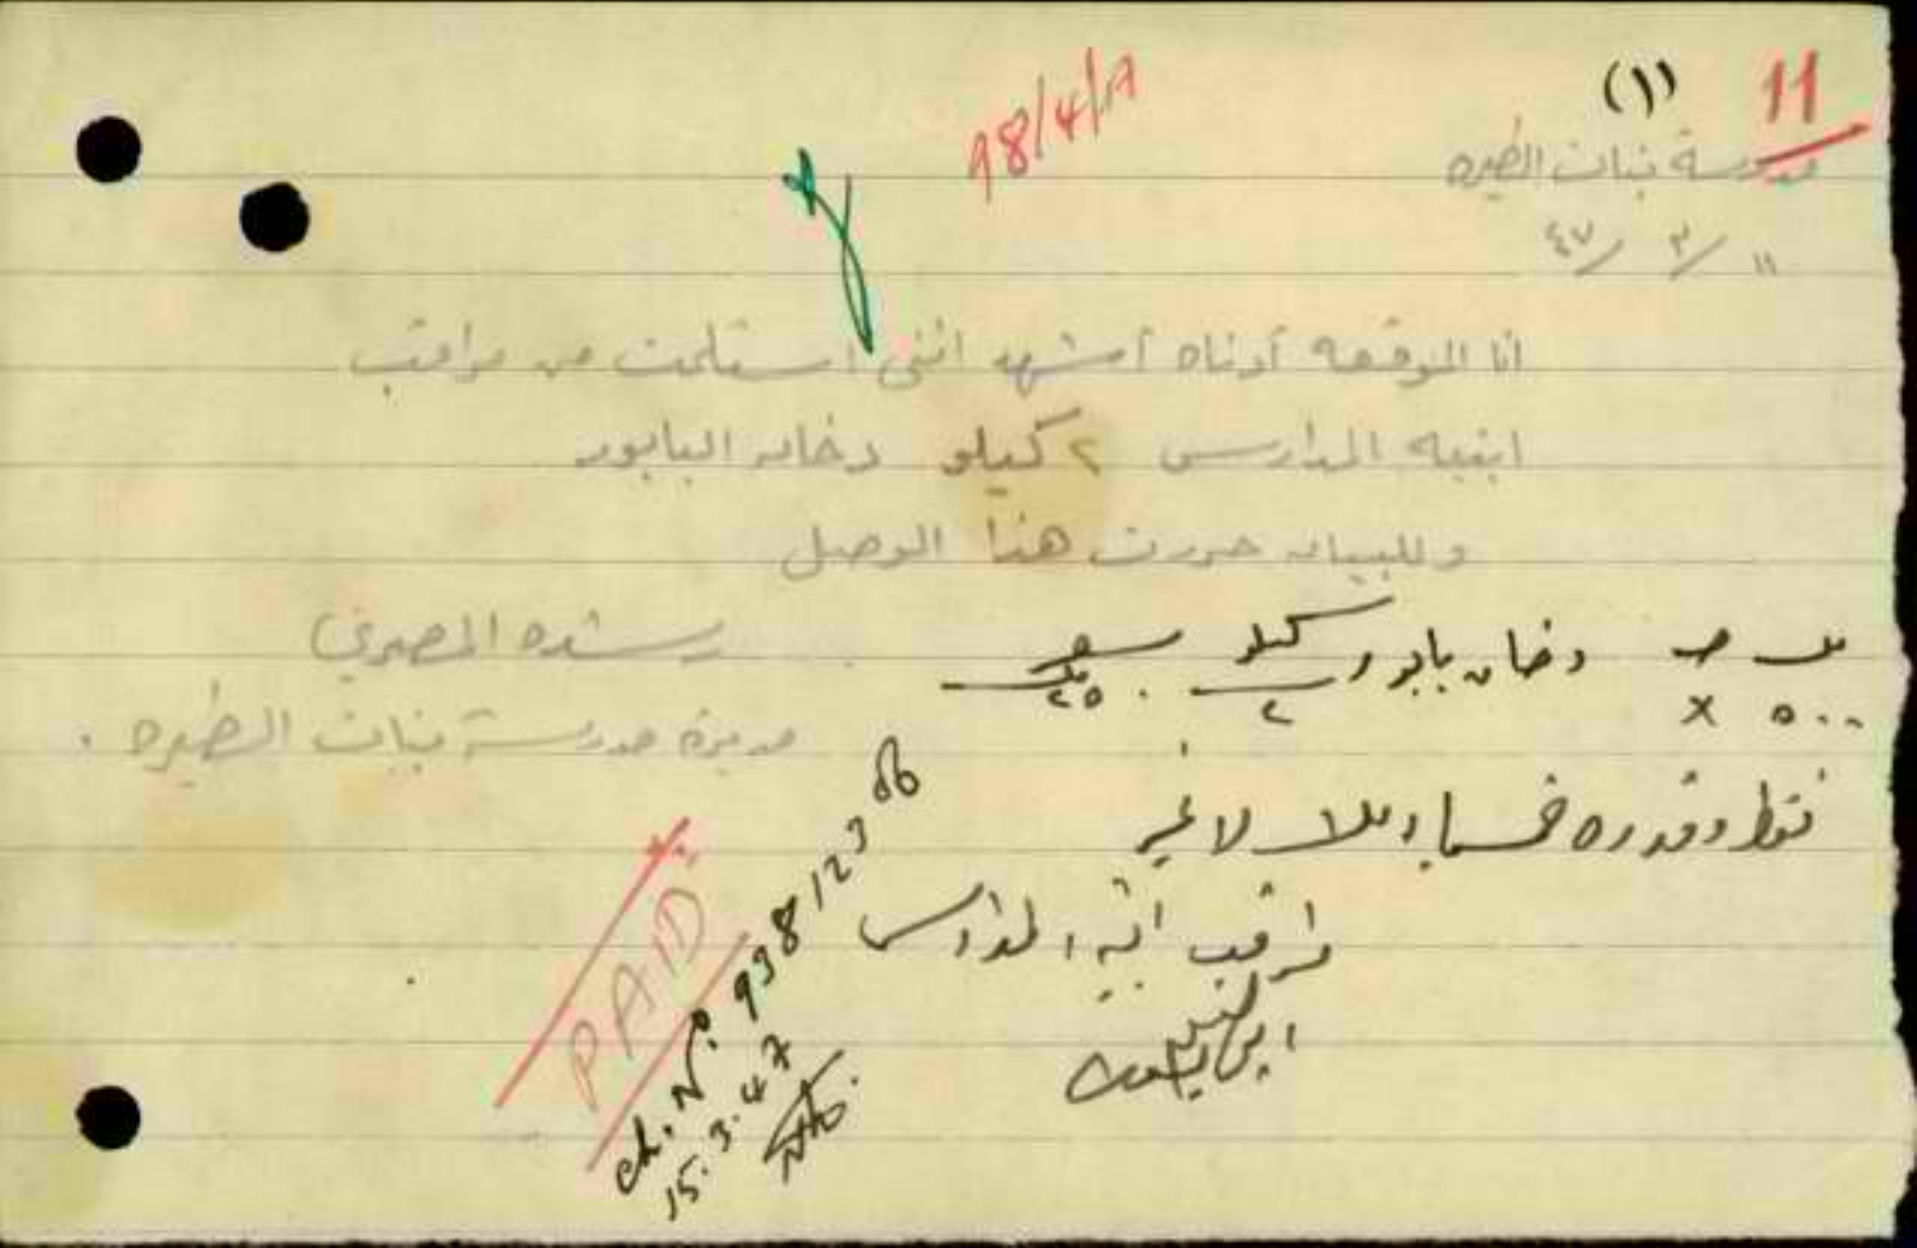 (١) 11
98/4/17
مدرسة بنات الطيره
١١ / ٣ / ٤٧
انا الموقعه أدناه أشهد انني استلمت من مراقب
ابنيه المدارس ٢ كيلو دخان البابور
وللبيان حررت هذا الوصل
رشده المصري
مديرة مدرسة بنات الطيره .
مل جـ دخان بابور كيلو سعر
٥٠٠ X ٢ ٢٥٠ مل
فقط وقدره خمسماية ملا لا غير
مراقب ابنية المدارس
PAID
Ch. No. 938123
15.3.47